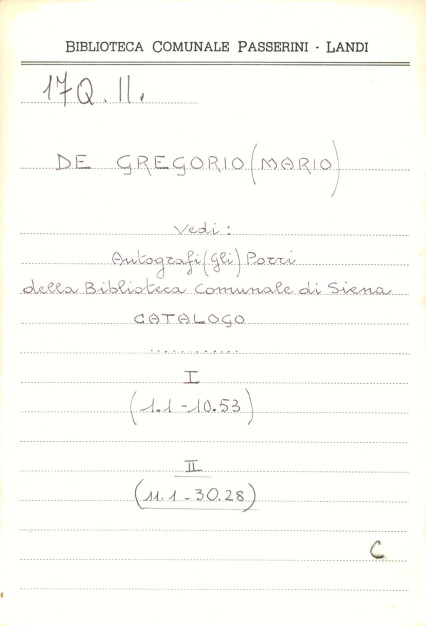 BIBLIOTECA COMUNALE PASSERINI - LANDI
17Q. II.
DE GREGORIO (MARIO)
Vedi:
Autografi (Gli) Porri
della Biblioteca Comunale di Siena
CATALOGO
............
I
(1.1 - 10.53)
II
(11.1 - 30.28)
C